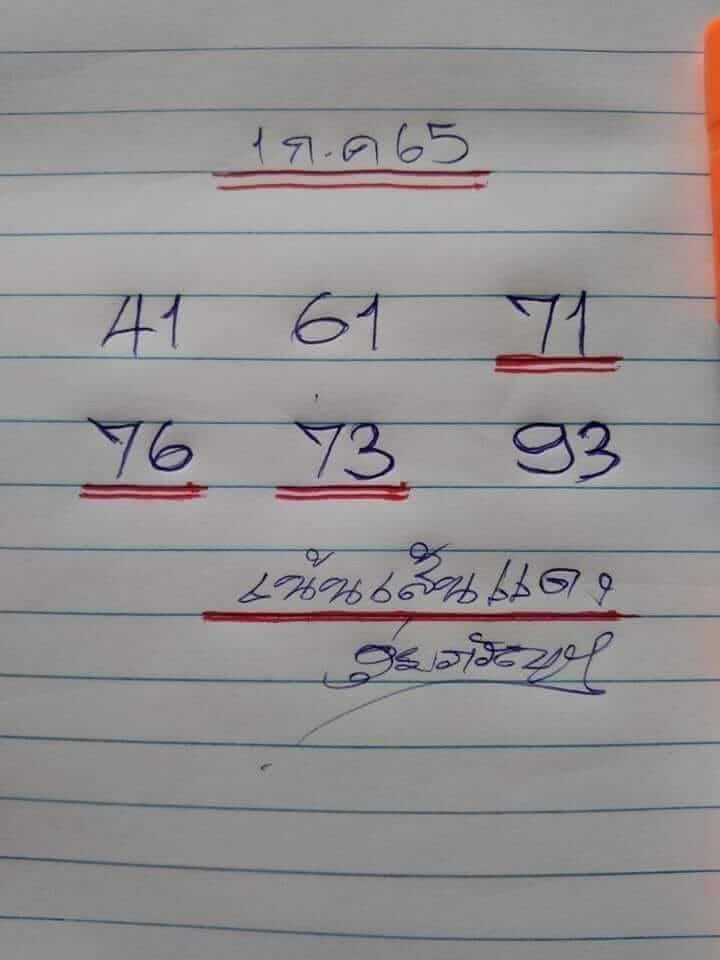 1 ก.ค 65
41 61 71
76 73 93
เน้นเส้นแดง